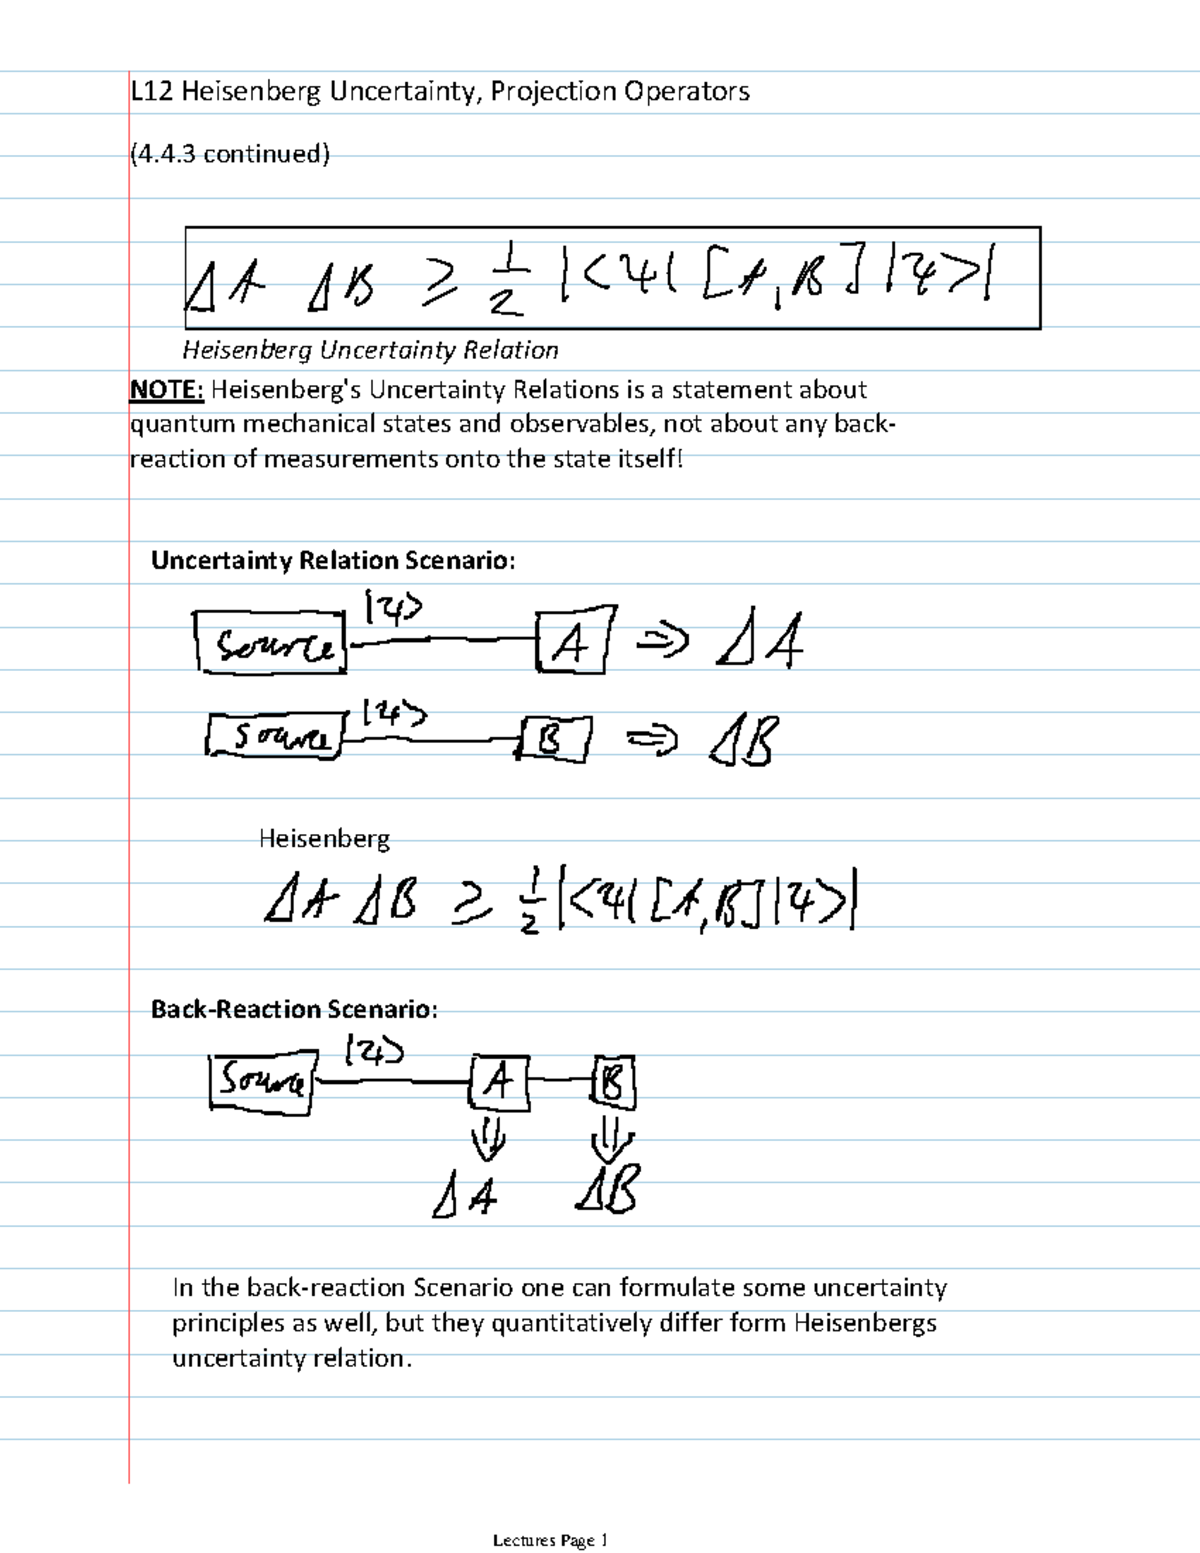 L12 Heisenberg Uncertainty, Projection Operators
(4.4.3 continued)
ΔA ΔB ≥ 1/2 |<ψ| [A,B] |ψ>|
Heisenberg Uncertainty Relation
NOTE: Heisenberg's Uncertainty Relations is a statement about
quantum mechanical states and observables, not about any back-
reaction of measurements onto the state itself!
Uncertainty Relation Scenario:
Source |ψ> A ⇒ ΔA
Source |ψ> B ⇒ ΔB
Heisenberg
ΔA ΔB ≥ 1/2 |<ψ| [A,B] |ψ>|
Back-Reaction Scenario:
Source |ψ> A B
⇓ ⇓
ΔA ΔB
In the back-reaction Scenario one can formulate some uncertainty
principles as well, but they quantitatively differ form Heisenbergs
uncertainty relation.
Lectures Page 1